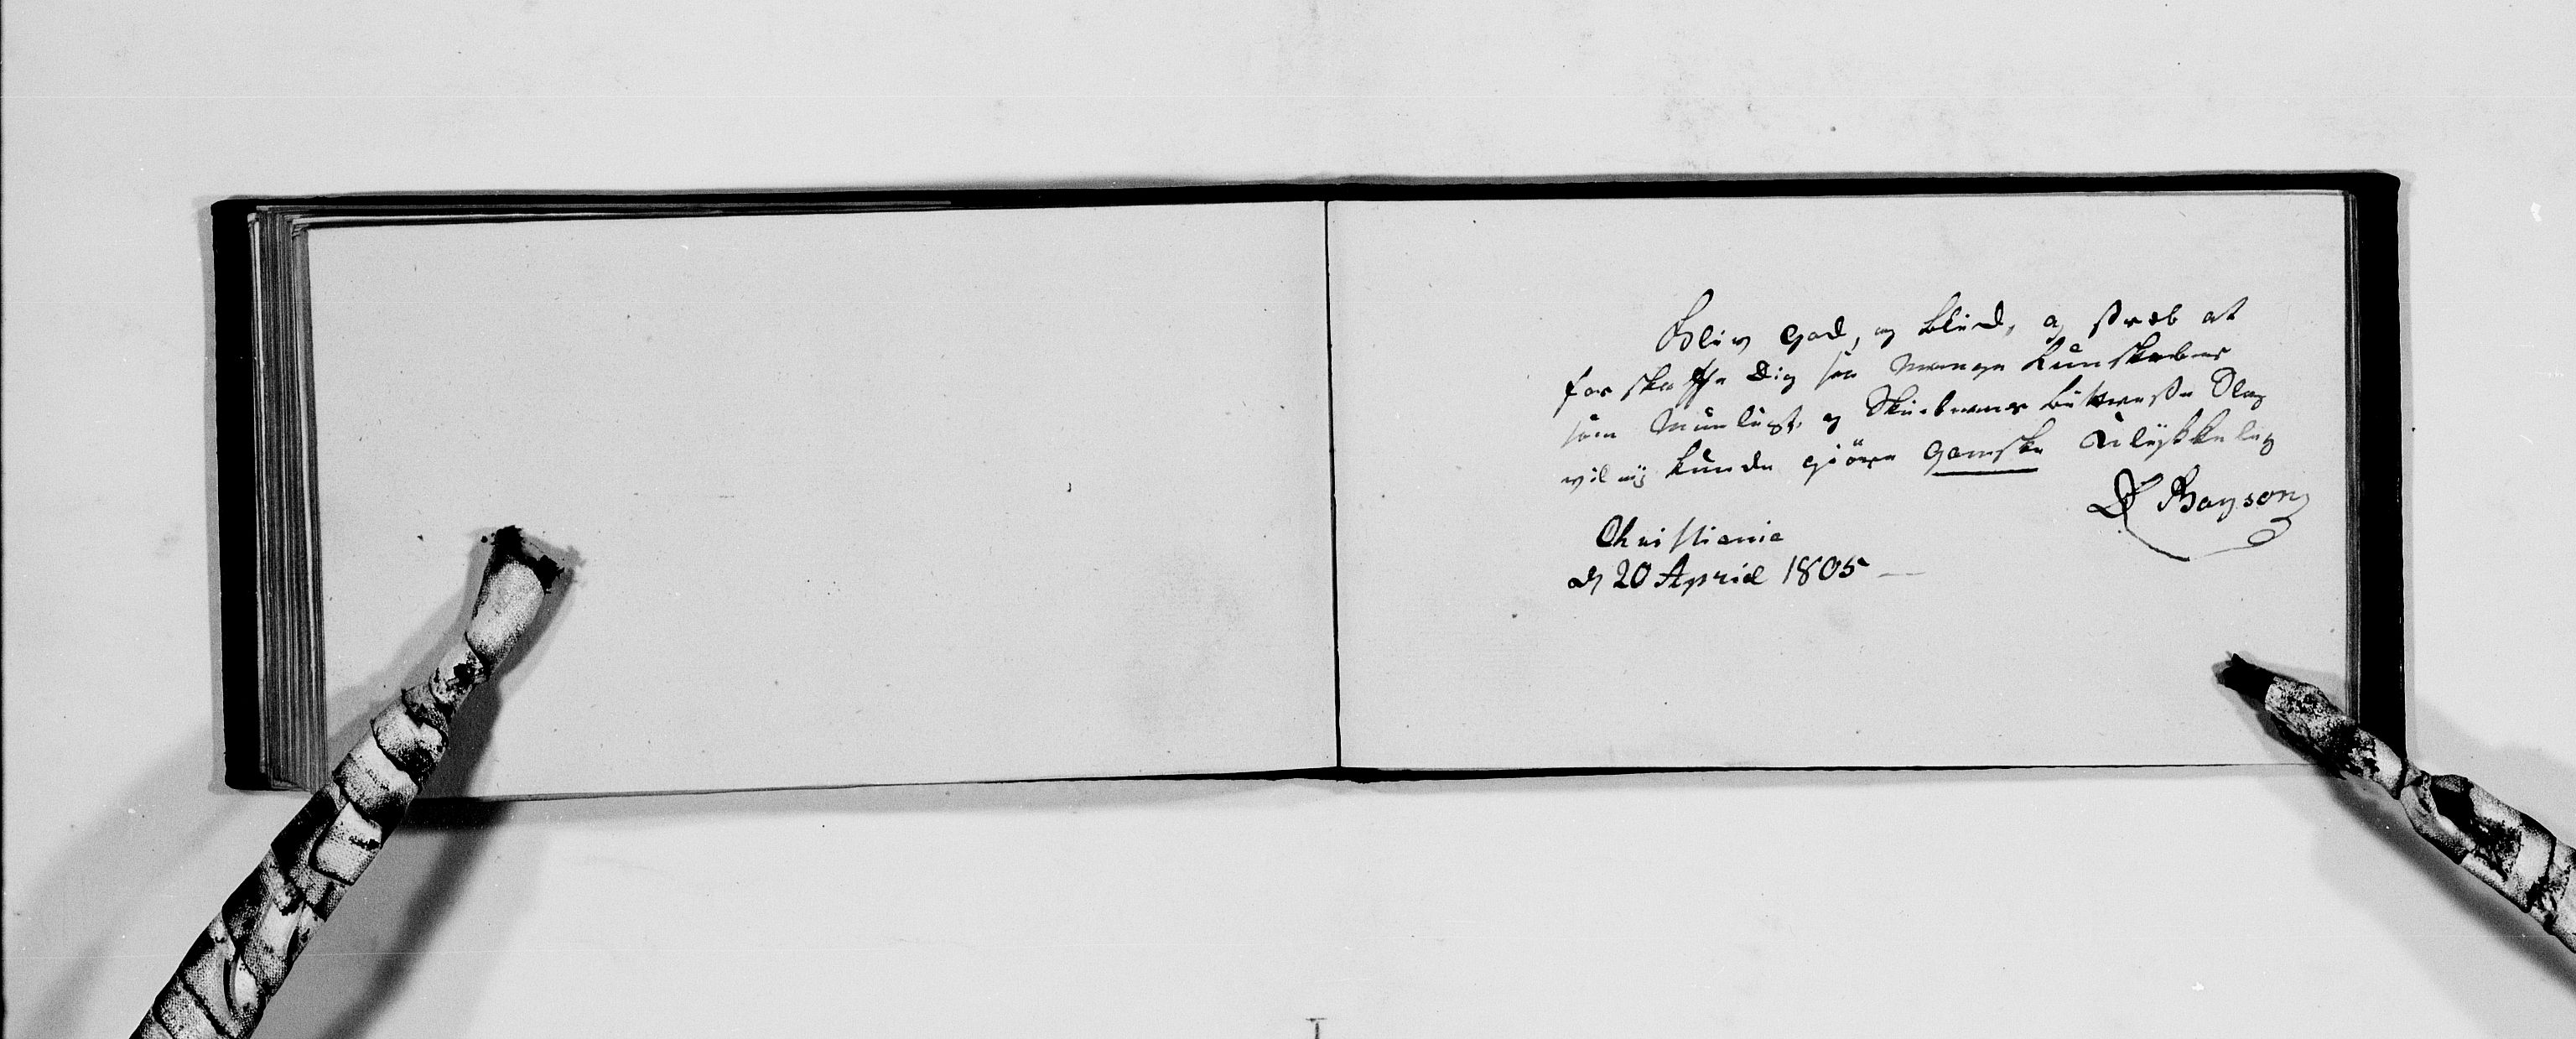 Bliv god, og blid, og stræb at
forskaffe Dig saa mange Kunskaber
som Mueligt, og Skiebnens bittreste Slag
vil ej kunde giöre gandske Ulykkelig
Bayson
Christiania
d 20 April 1805